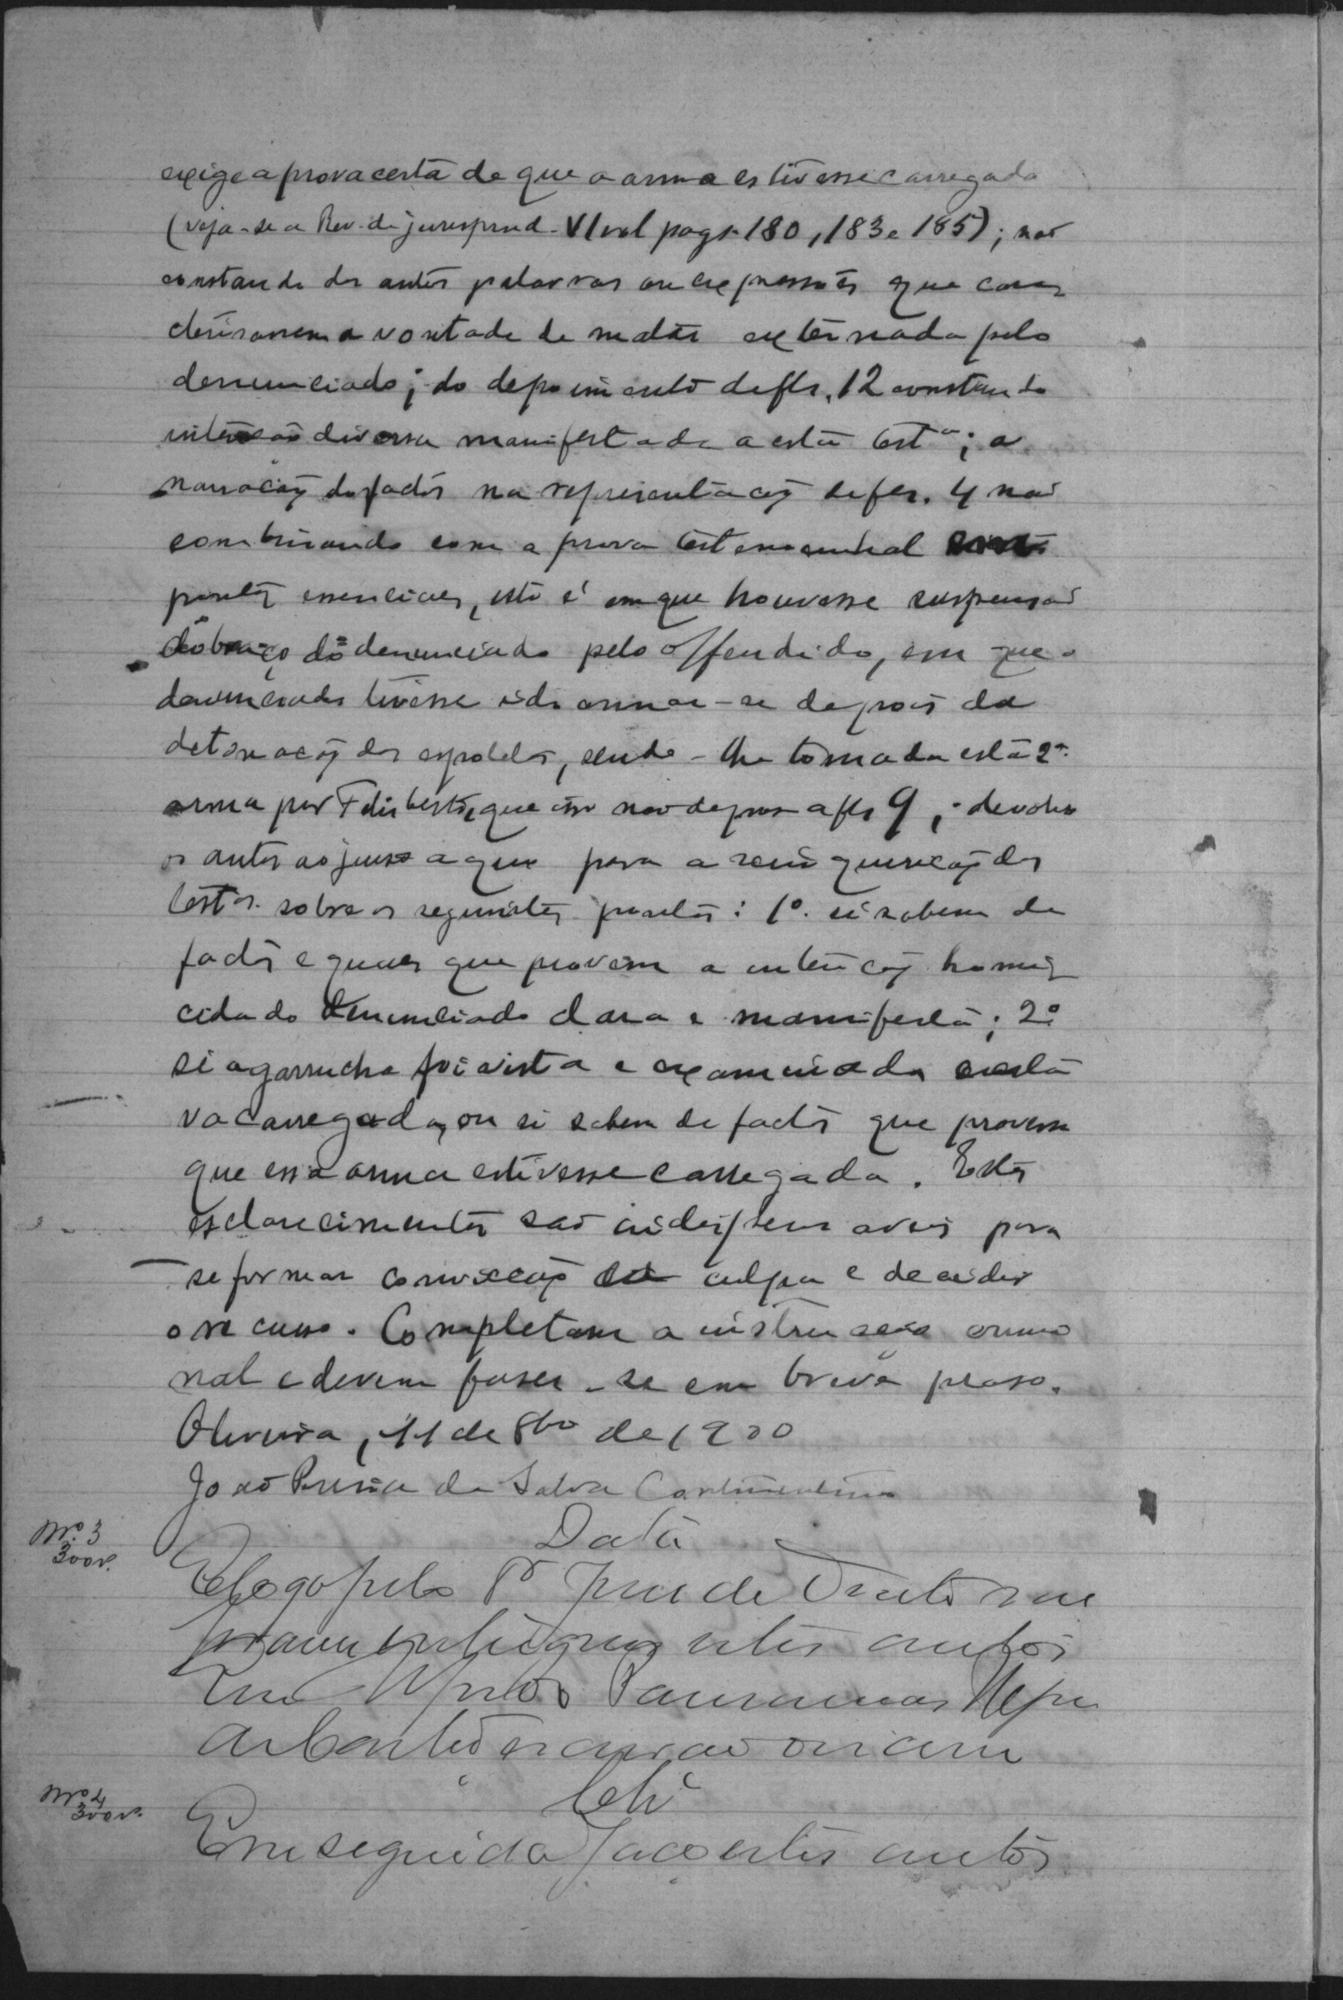 exige a prova certa de que a arma estivesse carregada
(veja-se a Rev. de jurisprud. VI vol pags. 180, 183 e 185); não
constando dos autos palavras ou expressões que carac
terisarem a vontade de matar externada pelo
denunciado; do depoimento de fls. 12 constando
intenção diversa manifestada a esta testª; a
narração dos factos na representação de fls. 4 não
combinando com a prova testemunhal em
pontos essenciaes, isto é em que houvesse suspensão
do braço do denunciado pelo offendido, em que o
denunciado tivesse ido armar-se depois da
detonação das espoletas, sendo-lhe tomada esta 2ª
arma por Felisberto, que isso não depoz a fls 9, devolvo
os autos ao juizo a quo para a reinquirição das
testas. sobre os seguintes pontos: 1º. si sabem de
factos e quaes que provem a intenção homi
cida do denunciado clara e manifesta; 2º
si a garrucha foi vista e examinada e está
va carregada, ou si sabem de factos que provem
que essa arma estivesse carregada. Estes
esclarecimentos são indispensaveis para
se formar convicção culpa e decidir
o recurso. Completam a instrucção crimi
nal e devem fazer-se em breve praso.
Oliveira, 11 de 8bro de 1900
João Pereira da Silva Continentino
Data
Nº. 3
300r.
E logo pelo Dr Juiz de Direito me
foram entregues estes autos
Eu
escrivão
Nº 4
300r.
Clz
Em seguida faço estes autos